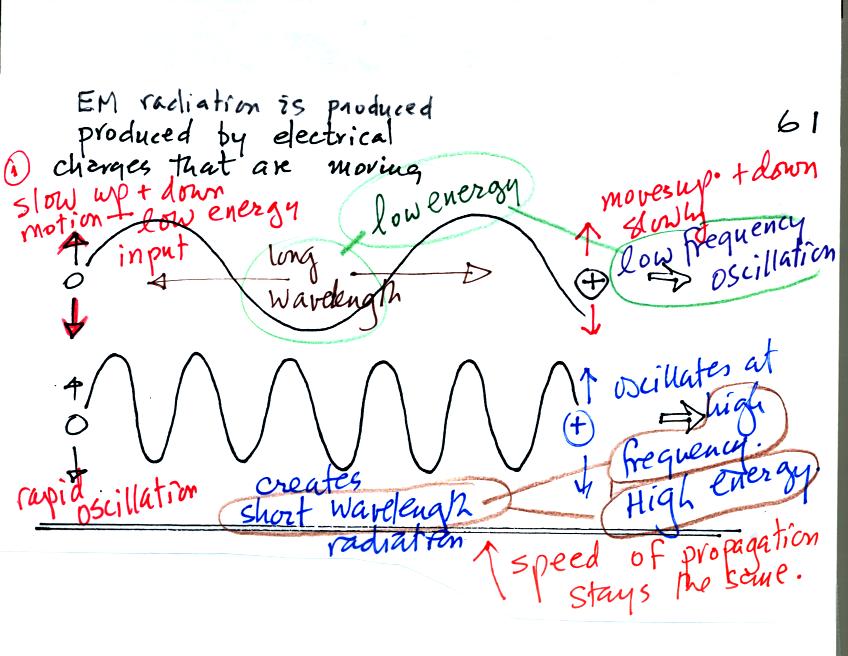 EM radiation is produced
produced by electrical
61
① charges that are moving
slow up + down
motion - low energy
input
low energy
moves up + down
slowly
long
wavelength
low frequency
oscillation
+
oscillates at
high
frequency.
High energy.
+
rapid
oscillation
creates
short wavelength
radiation
speed of propagation
stays the same.